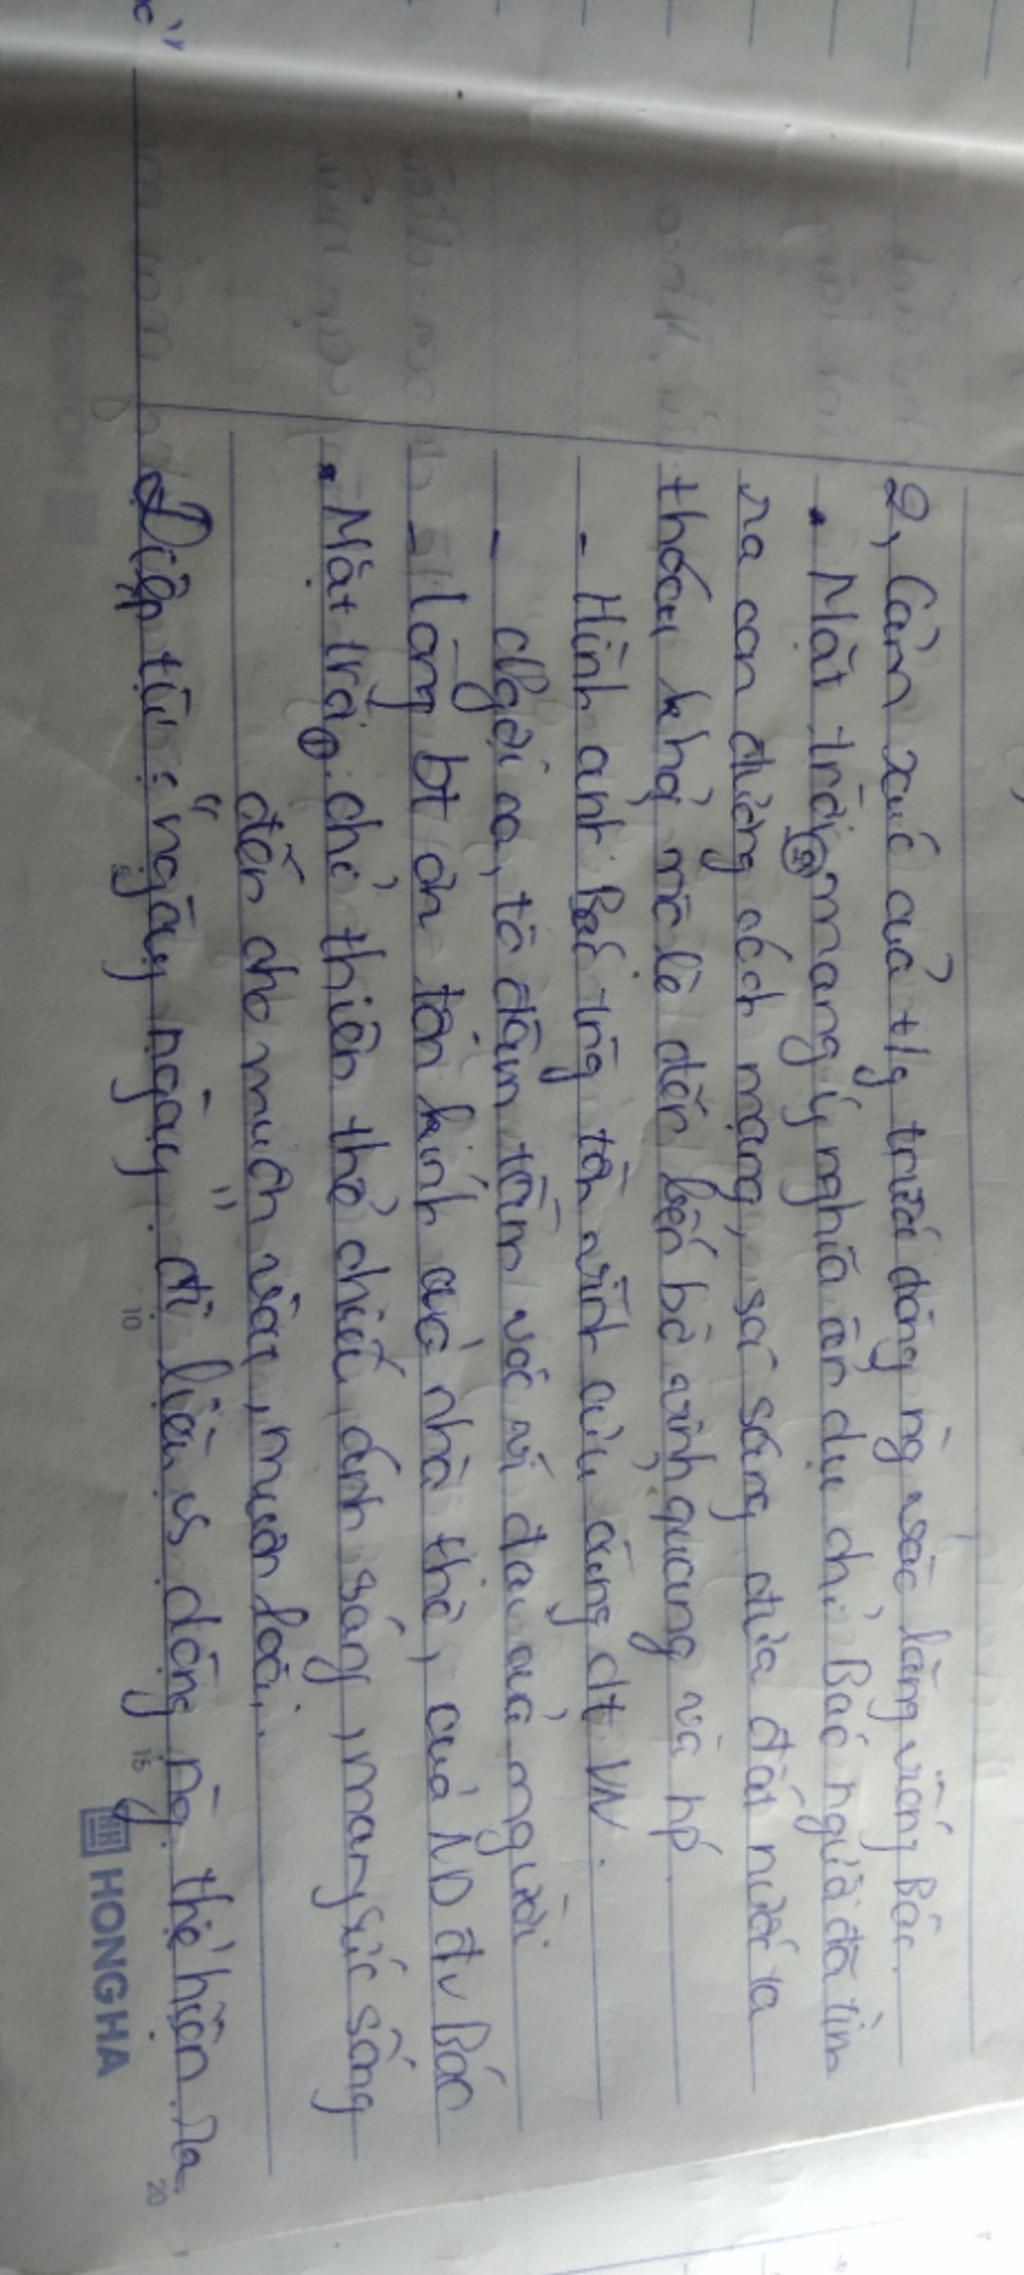 2, Cảm xúc của t/g trước dòng ng vào lăng viếng Bác.
• Mặt trời ② mang ý nghĩa ẩn dụ chỉ Bác người đã tìm
ra con đường cách mạng, soi sáng đưa đất nước ta
thoát khỏi nô lệ đến bến bờ vinh quang và hp
- Hình ảnh Bác trg tồn vĩnh cửu cùng dt VN.
- Ngợi ca, tô đậm tầm vóc vĩ đại của người
- lòng bt ơn tôn kính của nhà thơ, của ND đv Bác
• Mặt trời ① chỉ thiên thể chiếu ánh sáng, mang sức sống
đến cho muôn vật, muôn loài.
Điệp từ: "ngày ngày" đi liền vs dòng ng thể hiện ra
5 10 15 20
HONG HA